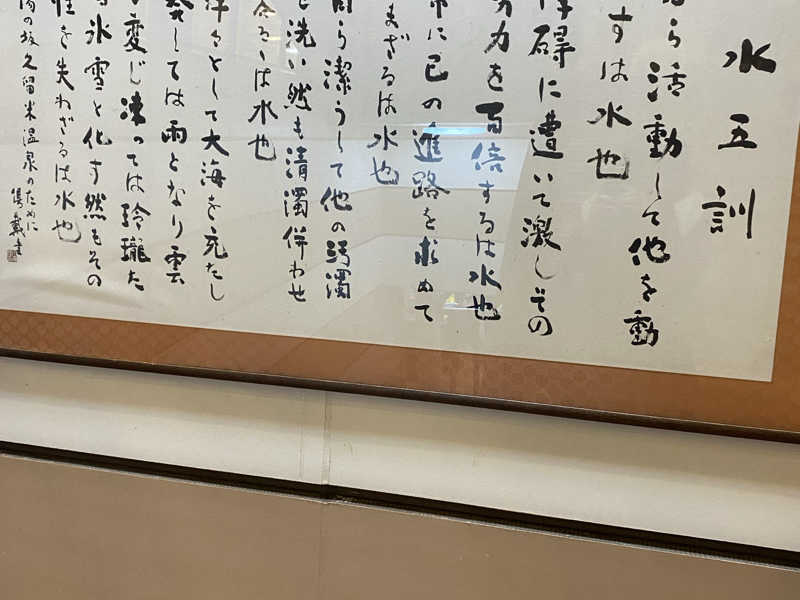 水五訓
ら活動して他を動
すは水也
障碍に遭いて激しその
努力を百倍するは水也
常に己の進路を求めて
まざるは水也
自ら潔うして他の汚濁
洗い然も清濁併わせ
るは水也
洋々として大海を充たし
発しては雨となり雲
変じ凍っては玲瓏た
氷雪と化す然もその
性を失わざるは水也
の坂久留米温泉のために